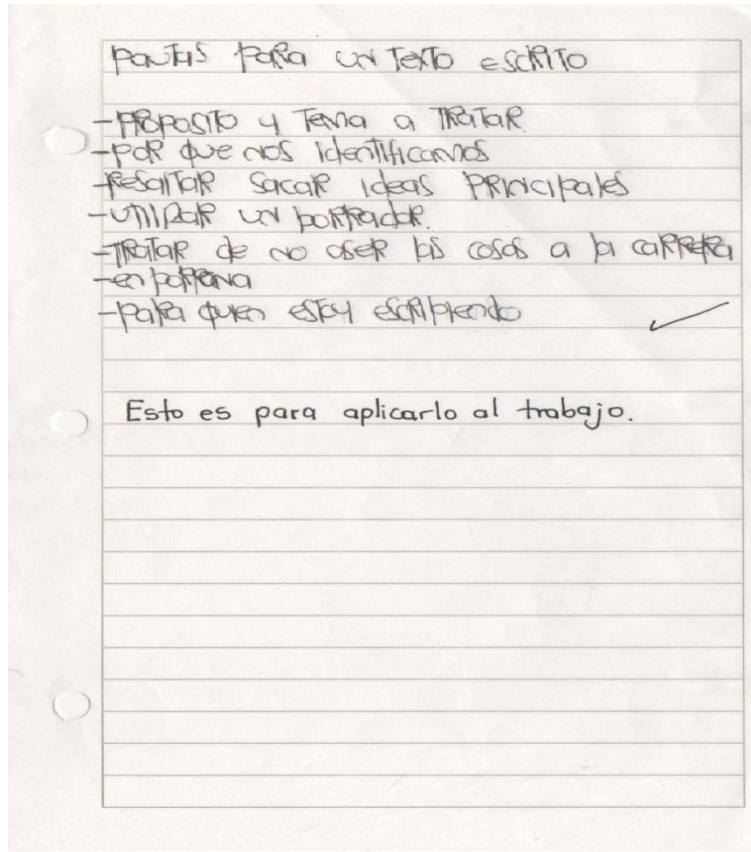 pautas para un texto escrito
-proposito y Tema a TRaTaR.
-poR que nos identificamos
-ResalTaR sacaR ideas PRincipales
-uTilizaR un borrador.
-TRaTaR de no aseR las cosas a la caRReRa
-en
-para quien estoy escribiendo
Esto es para aplicarlo al trabajo.